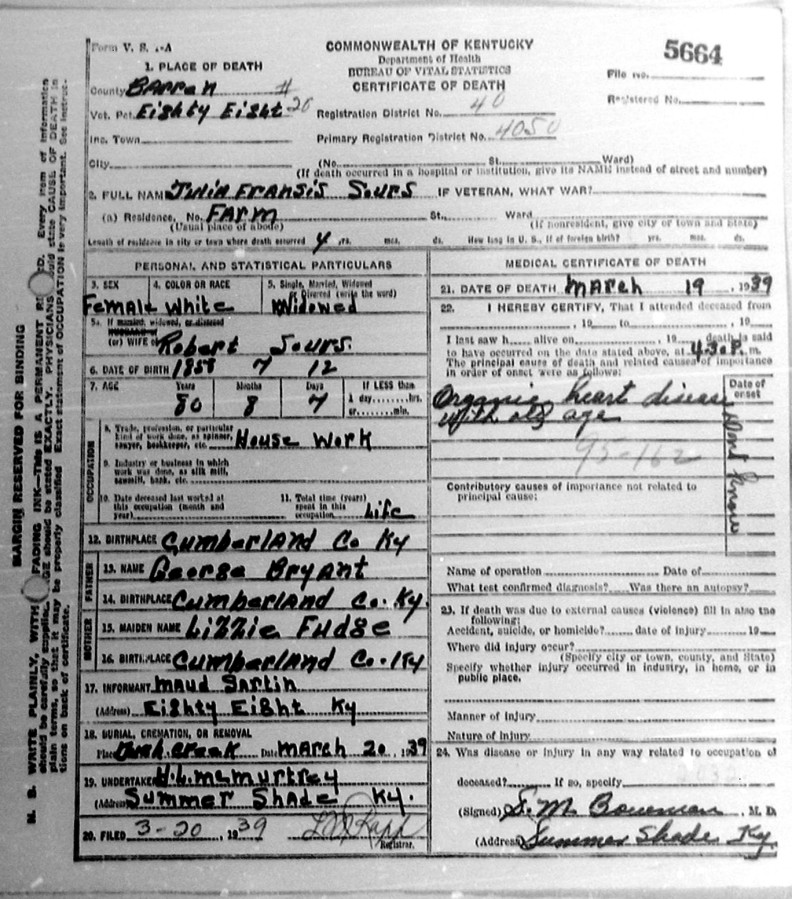 Form V. S. 1-A
COMMONWEALTH OF KENTUCKY
Department of Health
BUREAU OF VITAL STATISTICS
CERTIFICATE OF DEATH
5664
File No.
Registered No.
1. PLACE OF DEATH
County Barren
Vot. Pct. Eighty Eight 20
Registration District No. 40
Inc. Town
Primary Registration District No. 4050
City (No. St. Ward)
(If death occurred in a hospital or institution, give its NAME instead of street and number)
2. FULL NAME Julia Fransis Sours IF VETERAN, WHAT WAR?
(a) Residence, No. Farm St., Ward
(Usual place of abode) (If nonresident, give city or town and State)
Length of residence in city or town where death occurred 4 yrs. mos. ds. How long in U. S., if of foreign birth? yrs. mos. ds.
PERSONAL AND STATISTICAL PARTICULARS
3. SEX 4. COLOR OR RACE 5. Single, Married, Widowed or Divorced (write the word)
Female White Widowed
5a. If married, widowed, or divorced
HUSBAND of
(or) WIFE of Robert Sours.
6. DATE OF BIRTH 1858 7 12
7. AGE Years Months Days If LESS than
80 8 7 1 day, hrs. or min.
OCCUPATION
8. Trade, profession, or particular kind of work done, as spinner, sawyer, bookkeeper, etc. House Work
9. Industry or business in which work was done, as silk mill, sawmill, bank, etc.
10. Date deceased last worked at this occupation (month and year)
11. Total time (years) spent in this occupation Life
12. BIRTHPLACE Cumberland Co Ky
FATHER
13. NAME George Bryant
14. BIRTHPLACE Cumberland Co. Ky.
MOTHER
15. MAIDEN NAME Lizzie Fudge
16. BIRTHPLACE Cumberland Co. Ky
17. INFORMANT Maud Sartin
(Address) Eighty Eight Ky
18. BURIAL, CREMATION, OR REMOVAL
Place Creek Date March 20, 1939
19. UNDERTAKER H.L. McMurtrey
(Address) Summer Shade Ky.
20. FILED 3-20, 1939
Registrar.
MEDICAL CERTIFICATE OF DEATH
21. DATE OF DEATH March 19, 1939
22. I HEREBY CERTIFY, That I attended deceased from
, 19 to , 19
I last saw h alive on , 19 death is said
to have occurred on the date stated above, at 4:30 P. m.
The principal cause of death and related causes of importance
in order of onset were as follows:
Date of onset
Organic heart disease
with old age
Dont Know
95-162
Contributory causes of importance not related to
principal cause:
Name of operation Date of
What test confirmed diagnosis? Was there an autopsy?
23. If death was due to external causes (violence) fill in also the
following:
Accident, suicide, or homicide? date of injury 19
Where did injury occur?
(Specify city or town, county, and State)
Specify whether injury occurred in industry, in home, or in
public place.
Manner of injury
Nature of injury
24. Was disease or injury in any way related to occupation of
deceased? If so, specify
(Signed) S. M. Bowman, M. D.
(Address) Summer Shade Ky.
MARGIN RESERVED FOR BINDING
N. B. WRITE PLAINLY, WITH FADING INK—This is A PERMANENT Every item of information
should be carefully supplied. AGE should be stated EXACTLY. PHYSICIANS should state CAUSE OF DEATH in
plain terms, so that it may be properly classified. Exact statement of OCCUPATION is very important. See instruc-
tions on back of certificate.